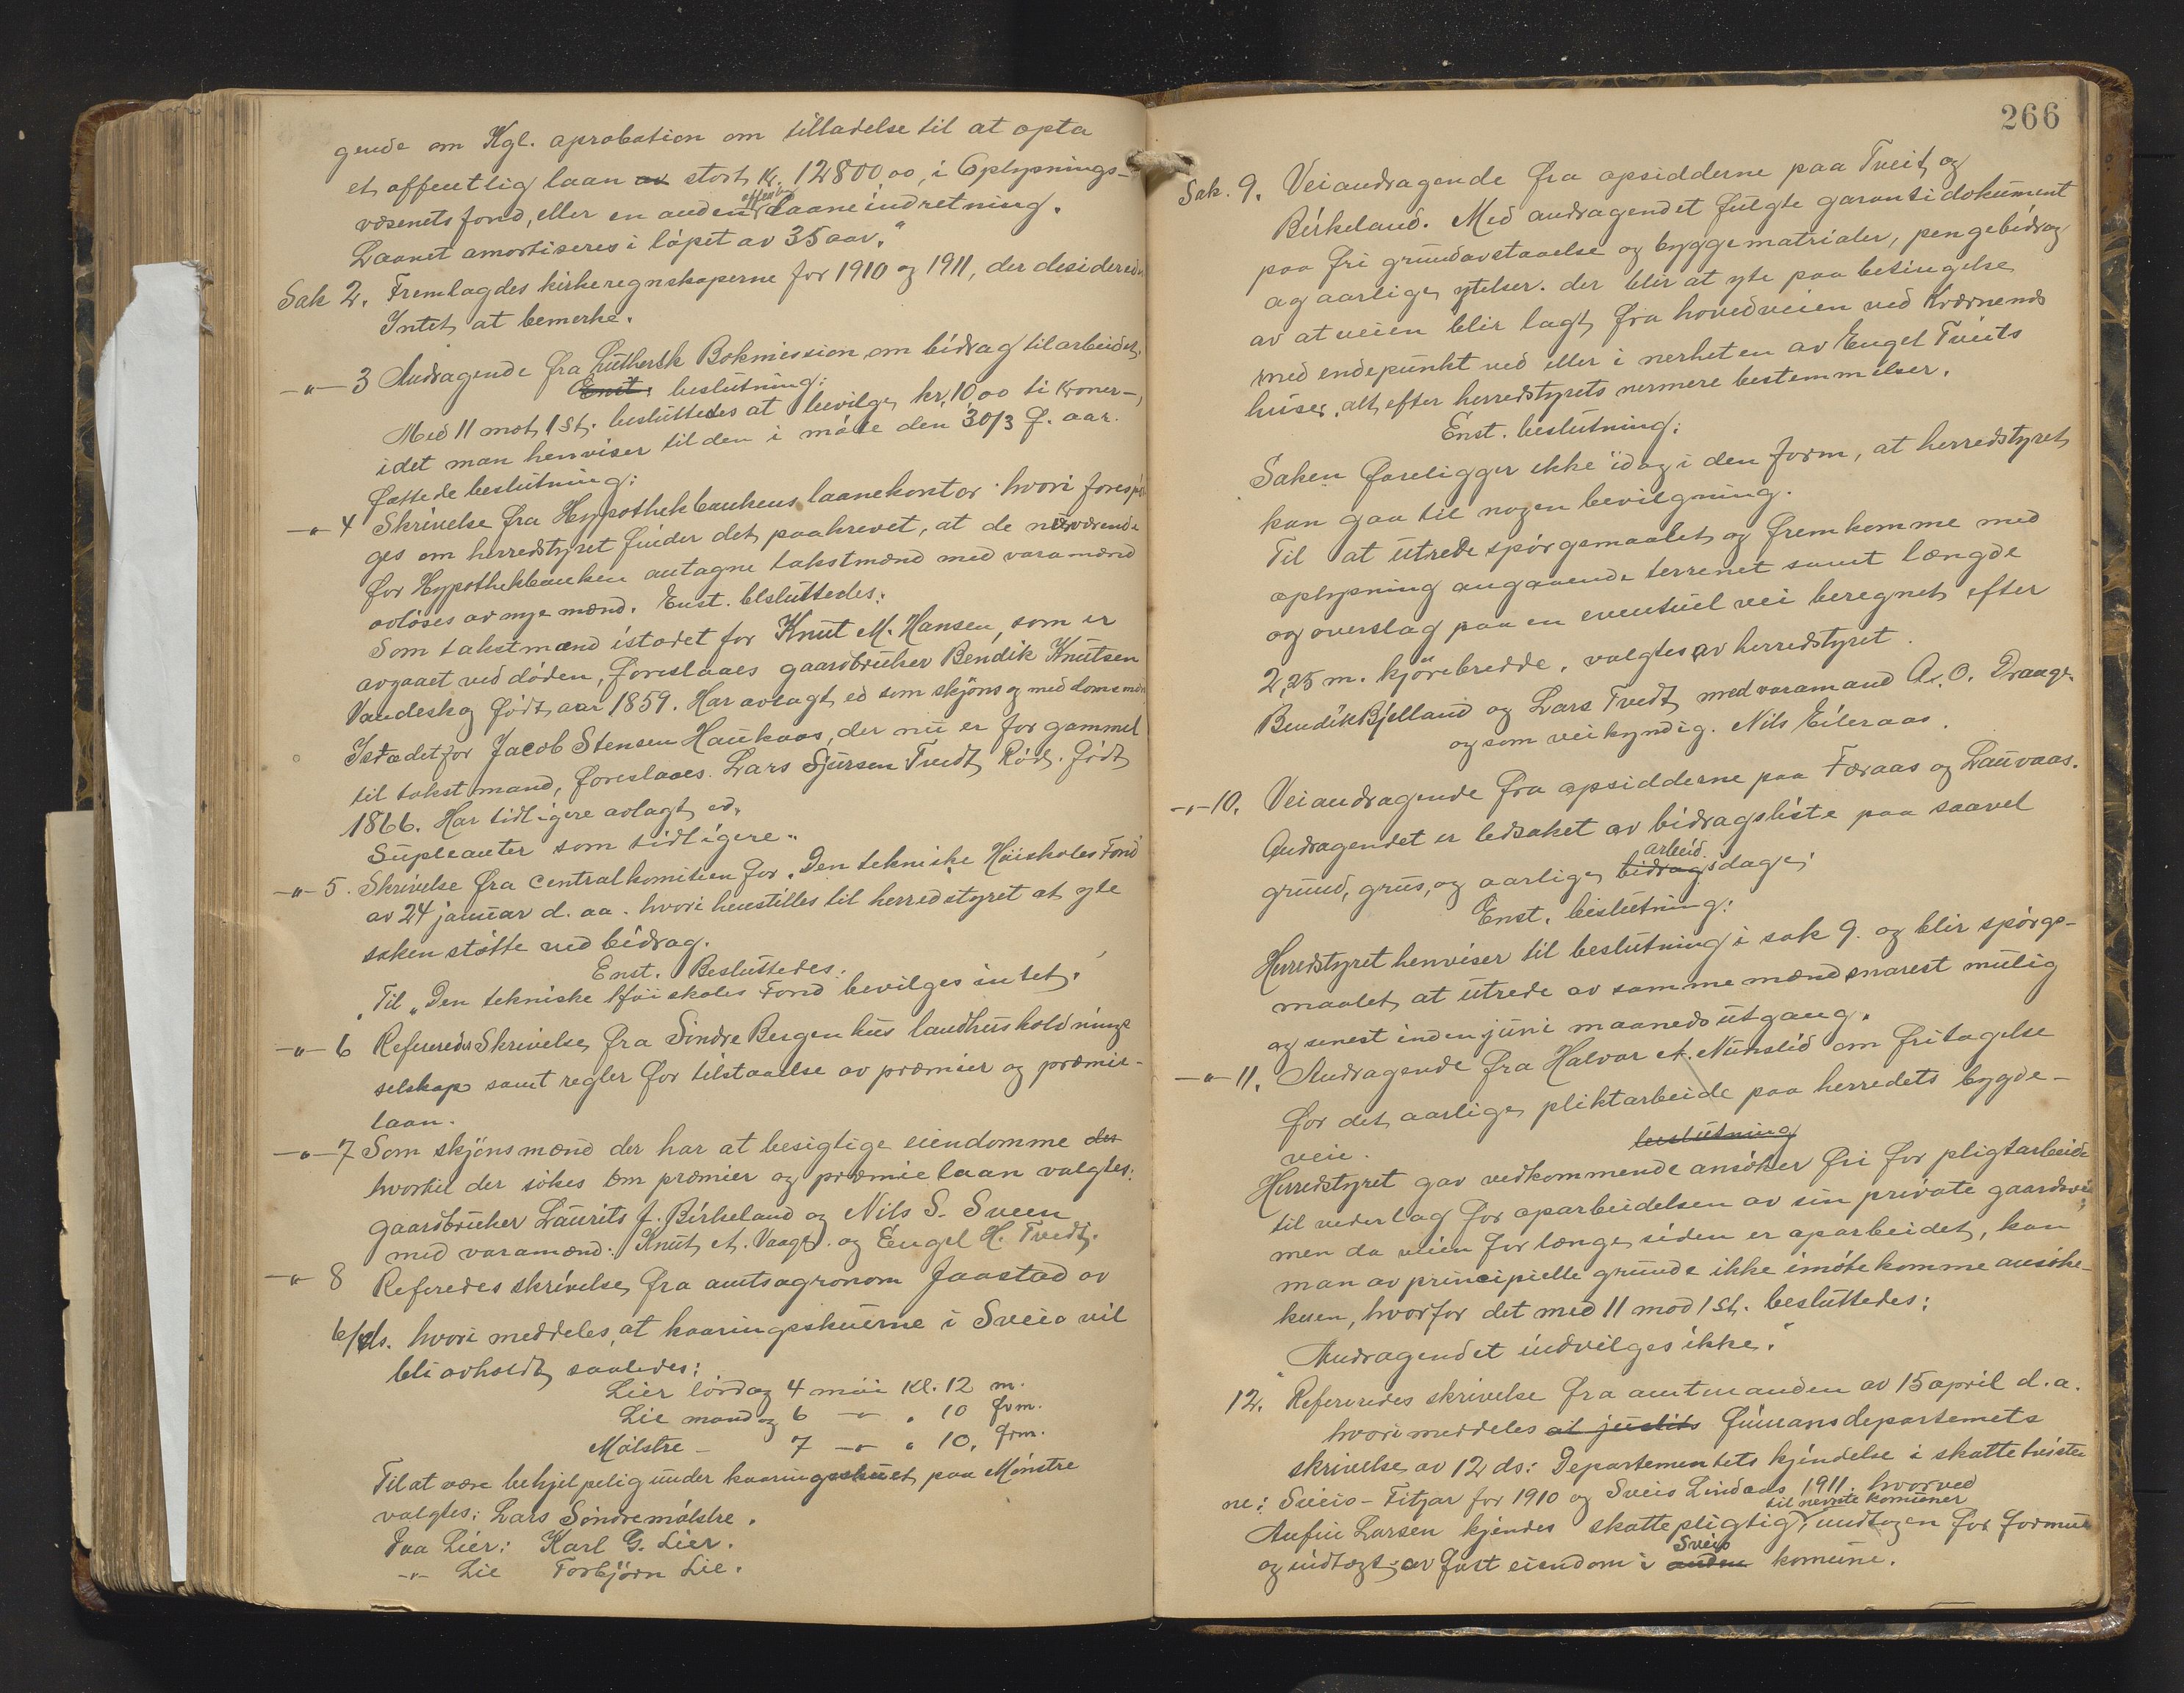 gende om Kgl. aprobation om tilladelse til at opta
et offentlig laan av stort kr. 12800 00, i Oplysnings-
væsenets fond, eller en anden offentlig Laaneindretning.
Laanet amortiseres i løpet av 35 aar."
Sak 2. Fremlagdes kirkeregnskaperne for 1910 og 1911, der desideredes
Intet at bemerke.
-"- 3 Andragende fra Luthersk Bokmission om bidrag til arbeidet.
Enst. beslutning:
Med 11 mot 1 st. besluttedes at bevilge kr. 10,00 ti kroner -,
idet man henviser til den i møte den 30/3 f. aar.
fattede beslutning:
-"- 4 Skrivelse fra Hypothekbankens laanekontor hvori forespør
ges om herredstyret finder det paakrevet, at de nuværende
for Hypothekbanken antagne takstmænd med varamænd
avløses av nye mænd. Enst. besluttedes:
Som takstmænd istædet for Knut M. Hansen, som er
avgaaet ved døden, foreslaaes gaardbruker Bendik Knutsen
Vandeskog født aar 1859. Har avlagt ed som skjøns og meddomsmæn
Istædetfor Jacob Stensen Haukaas, der nu er for gammel
til takstmand, foreslaaes Lars Sjursen Tvedt Röd. født
1866. Har tidligere avlagt ed.
Supleanter som tidligere."
-"- 5. Skrivelse fra Centralkomiteen for "Den tekniske Høiskoles Fond"
av 24 januar d. aa. hvori henstilles til herredstyret at yte
saken støtte ved bidrag.
Enst. Besluttedes:
"Til "Den tekniske Høiskoles Fond bevilges intet."
-"- 6 Refereredes Skrivelse fra Søndre Bergenhus landhusholdnings
selskap samt regler for tilstaaelse av præmier og præmie-
laan.
-"- 7 Som skjønsmænd der har at besigtige eiendomme der
hvortil der søkes om præmier og præmielaan valgtes:
gaardbruker Laurits J. Birkeland og Nils S. Sveen
med varamænd: Knut A. Vaage. og Engel H. Tvedt.
-"- 8 Referedes skrivelse fra amtsagronom Jaastad av
6/ ds. hvori meddeles at kaaringsskuerne i Sveio vil
bli avholdt saaledes:
Lier lørdag 4 mai Kl. 12 m.
Lie mandag 6 -"- " 10 fvm.
Mølstre - 7 -"- " 10. fvm.
Til at være behjelpelig under kaaringsskuet paa Mønstre
valgtes: Lars Søndremølstre.
Paa Lier: Karl G. Lier.
-"- Lie Torbjørn Lie.
266
Sak. 9. Veiandragende fra opsidderne paa Tveit og
Birkeland. Med andragendet fulgte garantidokument
paa fri grundavstaaelse og byggematrialer, pengebidrag
og aarlige ytelser. der blir at yte paa betingelse
av at veien blir lagt fra hovedveien ved Kværnenes
med endepunkt ved eller i nerheten av Engel Tveits
huser, alt efter herredstyrets nermere bestemmelser.
Enst. beslutning:
Saken foreligger ikke idag i den form, at herredstyret
kan gaa til nogen bevilgning.
Til at utrede spørgsmaalet og fremkomme med
oplysning angaaende terrenet samt længde
og overslag paa en eventuel vei beregnet efter
2,25 m. kjørebredde. valgtes av herredstyret
Bendik Bjelland og Lars Tvedt med varamand A. O. Draage.
og som veikyndig. Nils Eileraas.
-"- 10. Veiandragende fra opsidderne paa Færaas og Lauvaas.
Andragendet er ledsaket av bidragsliste paa saavel
grund, grus, og aarlige bidrags arbeid. dage:
Enst. beslutning:
Herredstyret henviser til beslutning i sak 9. og blir spørgs-
maalet at utrede av samme mænd snarest mulig
og senest inden juni maaneds utgang.
-"- 11. Andragende fra Halvor A. Nunslid om fritagelse
for det aarlige pliktarbeide paa herredets bygde-
veie. beslutning
Herredstyret gav vedkommende ansøker fri for pligtarbeide
til vederlag for oparbeidelsen av sin private gaardsvei
men da veien for længe siden er oparbeidet, kan
man av principielle grunde ikke imøtekomme ansøke-
ren, hvorfor det med 11 mod 1 St. besluttedes:
"Andragendet indvilges ikke."
12. Refereredes skrivelse fra amtmanden av 15 april d. a.
hvori meddeles at justits finansdepartemets
skrivelse av 12 ds: Departementets kjendelse i skattetviste
ne: Sveio - Fitjar for 1910 og Sveio Lindaas 1911. hvorved
Anfin Larsen kjendes skattepligtig til nevnte komuner, undtagen for formue
og indtægt av fast eiendom i anden Sveio komune.